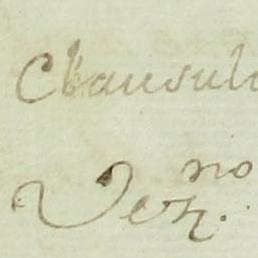 Clausul
Vez.no